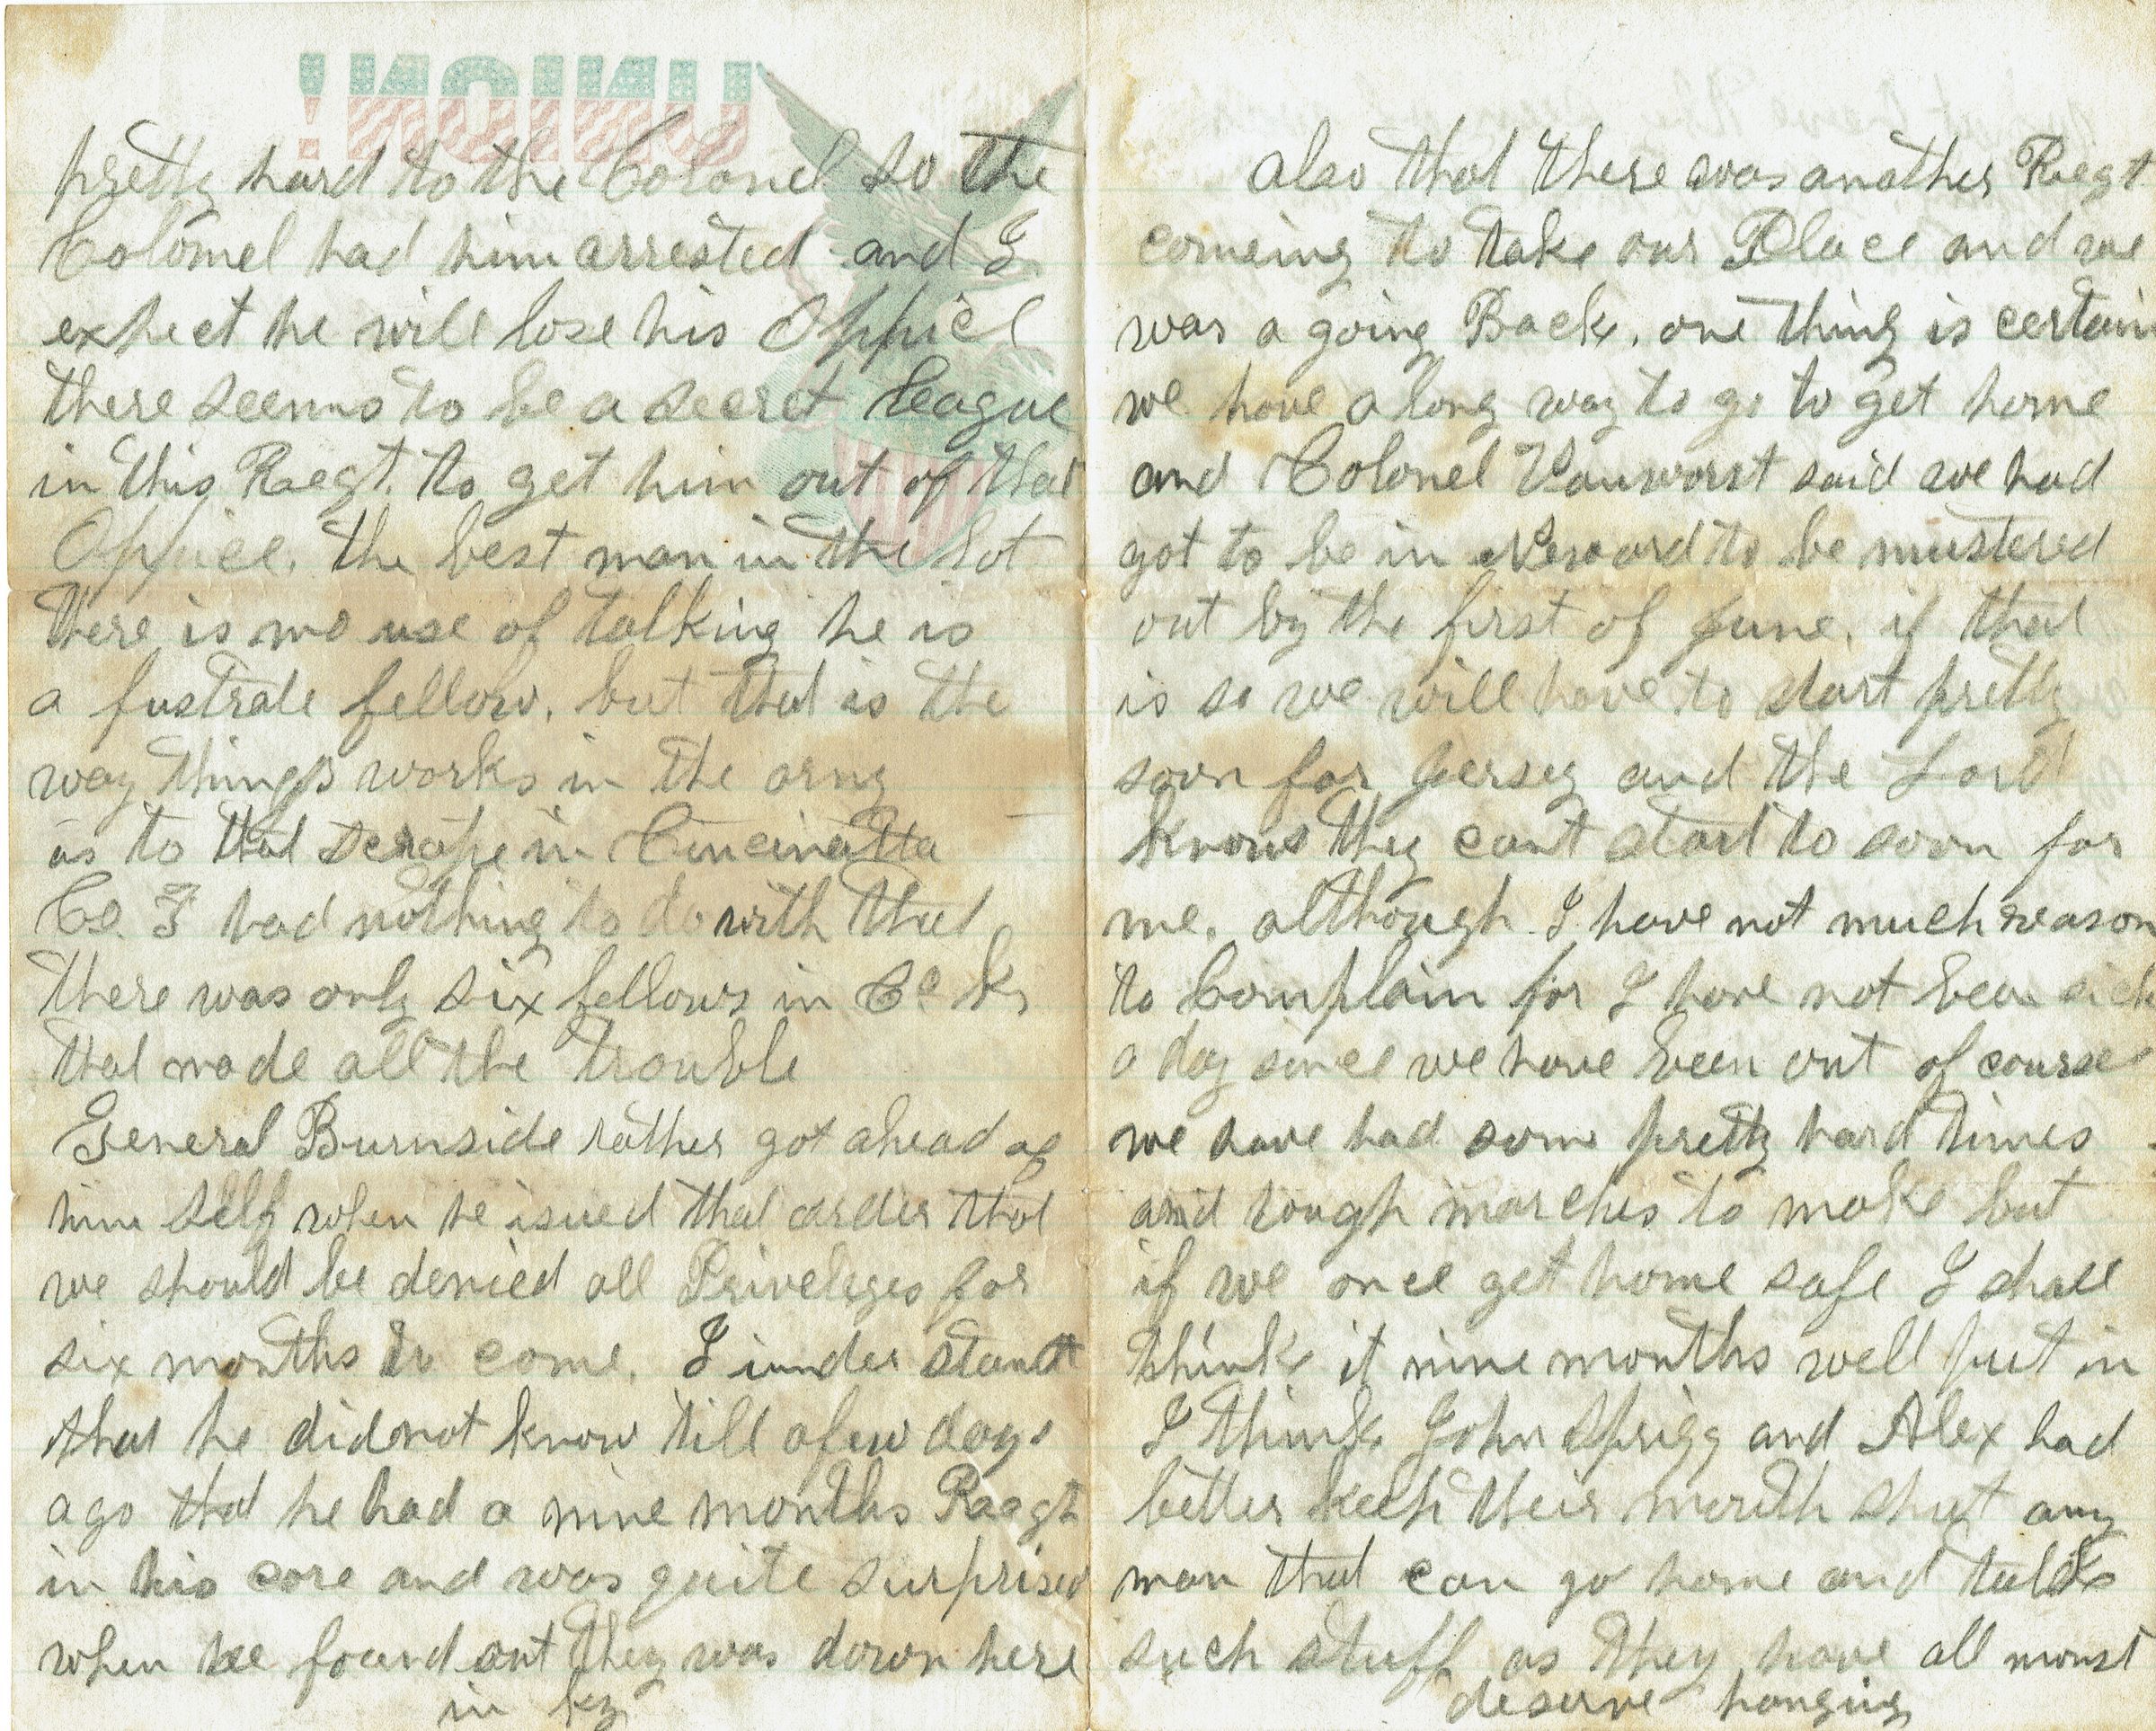 UNION!
pretty hard to the Colonel so the
Colonel had him arrested and I
expect he will lose his Office
there seems to be a secret league
in this Raegt. to get him out of that
Office. the best man in the Lot
there is no use of talking he is
a fustrate fellow, but that is the
way things works in the army
as to that scrape in Cincinatta
Co. F had nothing to do with that
there was only six fellows in Co K,
that made all the trouble
General Burnside rather got ahead of
him self when he isued that order that
we should be denied all Priveleges for
six months to come. I under stand
that he did not know till a few days
ago that he had a nine months Raegt
in his core and was quite surprised
when he found out they was down here
in ky
also that there was another Raegt
comeing to take our Place and we
was a going Back. one thing is certain
we have a long way to go to get home
and Colonel Vanworst said we had
got to be in Neward to be mustered
out by the first of June. if that
is so we will have to start pretty
soon for Jersey and the Lord
knows they cant start to soon for
me. although I have not much reason
to Complain for I have not been sick
a day since we have been out of course
we have had some pretty hard times
and tough marches to make but
if we once get home safe I shall
think it nine months well put in
I think John Sprigg and Alex had
better keep their mouth shut any
man that can go home and talks
such stuff as they have all most
deserve hanging